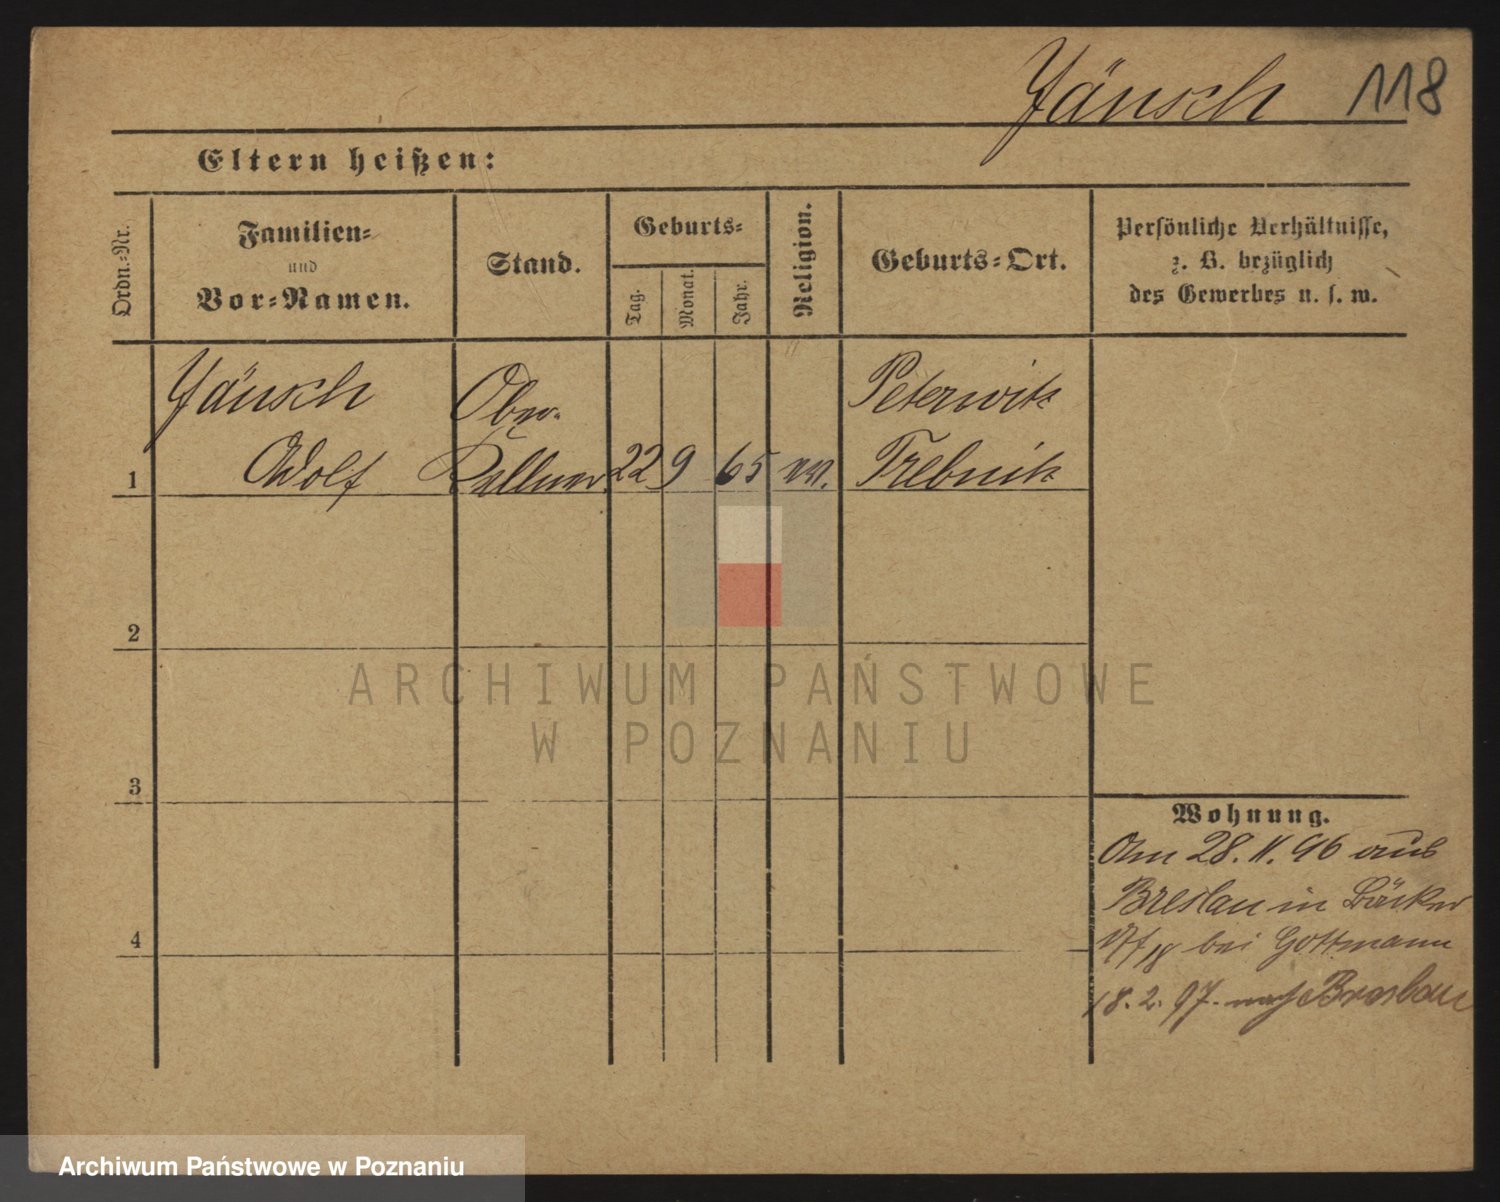 Jänsch 118
Eltern heißen:
Ordn.-Nr.
Familien-
und
Vor-Namen.
Stand.
Geburts-
Tag.
Monat.
Jahr.
Religion.
Geburts-Ort.
Persönliche Verhältnisse,
z. B. bezüglich
des Gewerbes u. s. w.
Jänsch
Adolf
Ober-
Kellner
22 9 65 ev.
Peterwitz
Trebnitz
1
2
3
4
ARCHIWUM PAŃSTWOWE
W POZNANIU
Wohnung.
Am 28. 11. 96 aus
Breslau in Bäcker
bei Gottmann
18. 2. 97. nach Breslau
Archiwum Państwowe w Poznaniu